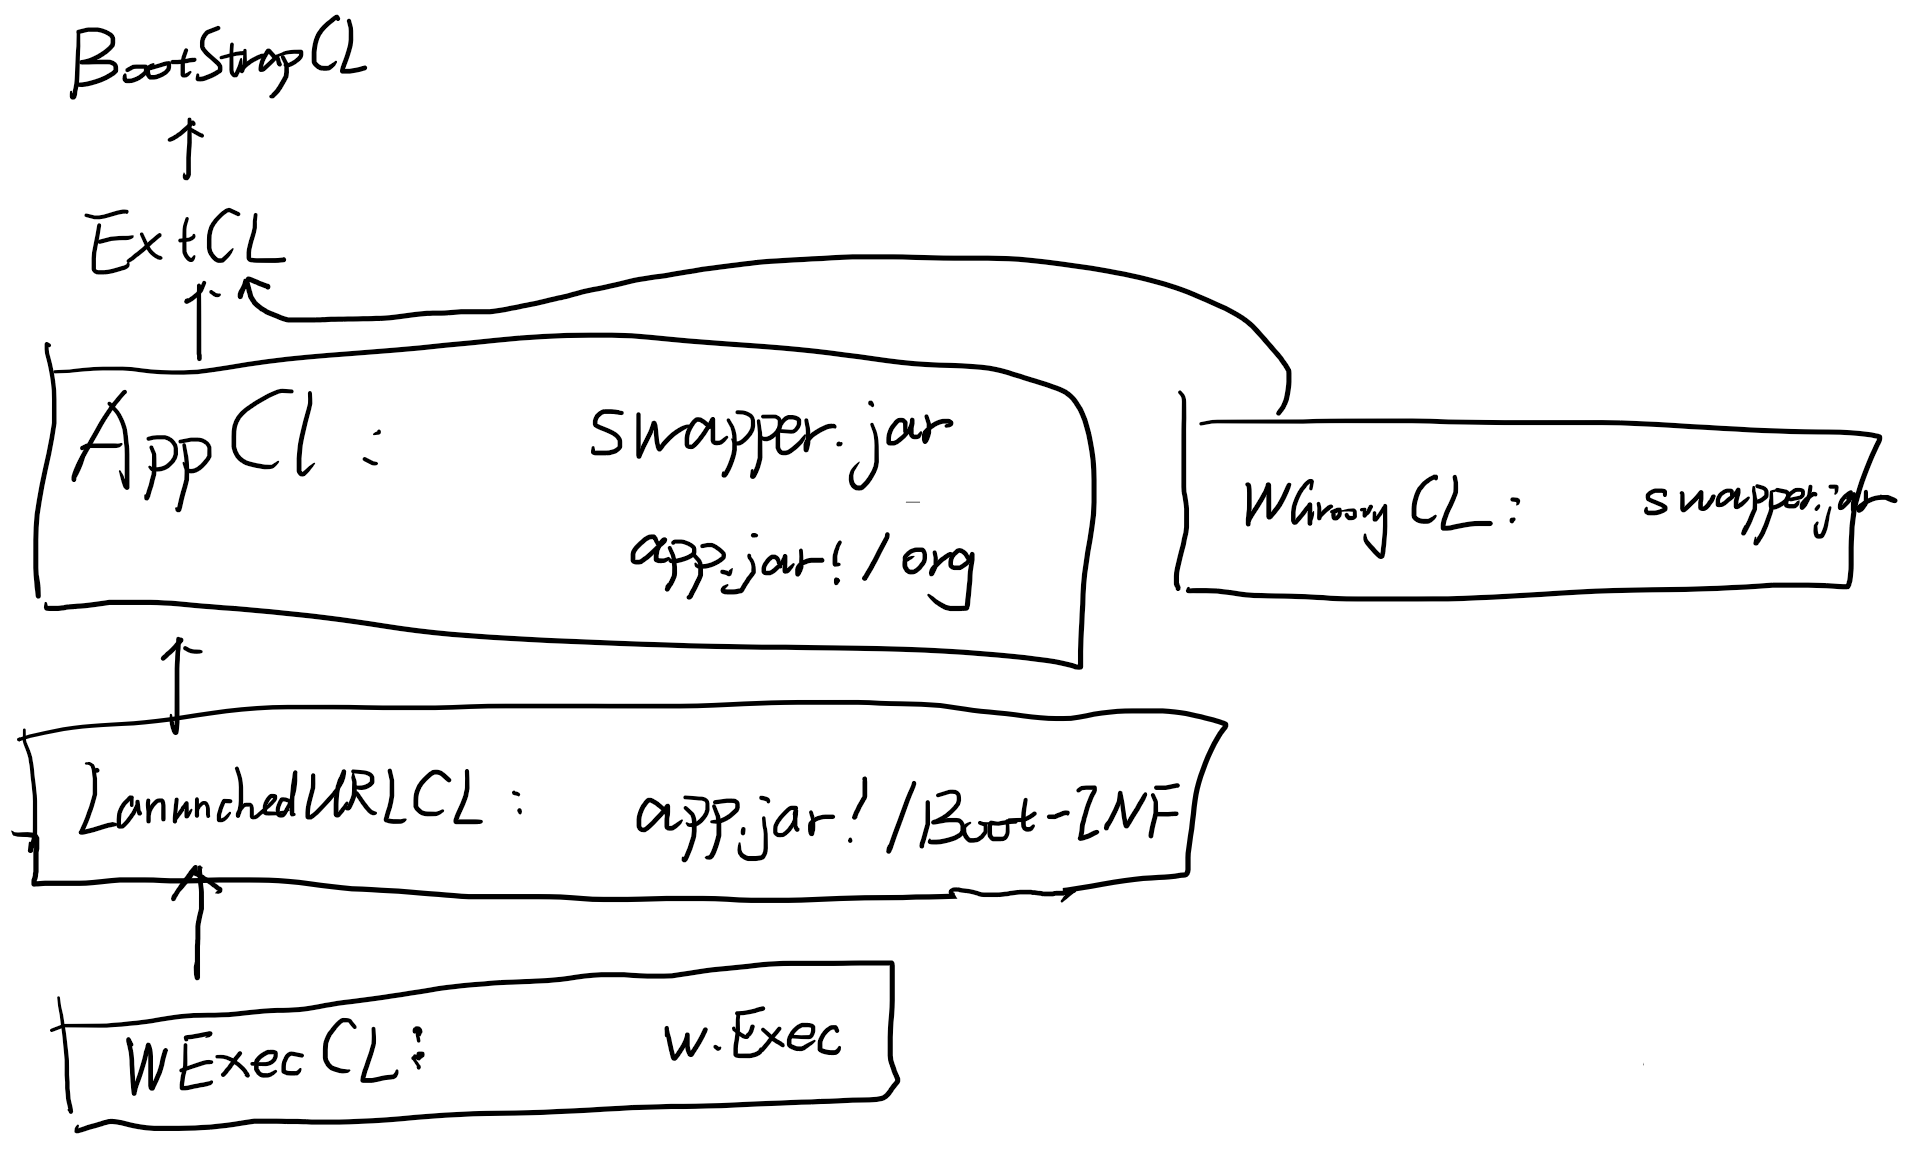 BootStrapCL
ExtCL
AppCl: swapper.jar
app.jar!/org
WGroovyCL: swapper.jar
LanunchedURLCL: app.jar!/Boot-INF
WExecCL: w.Exec